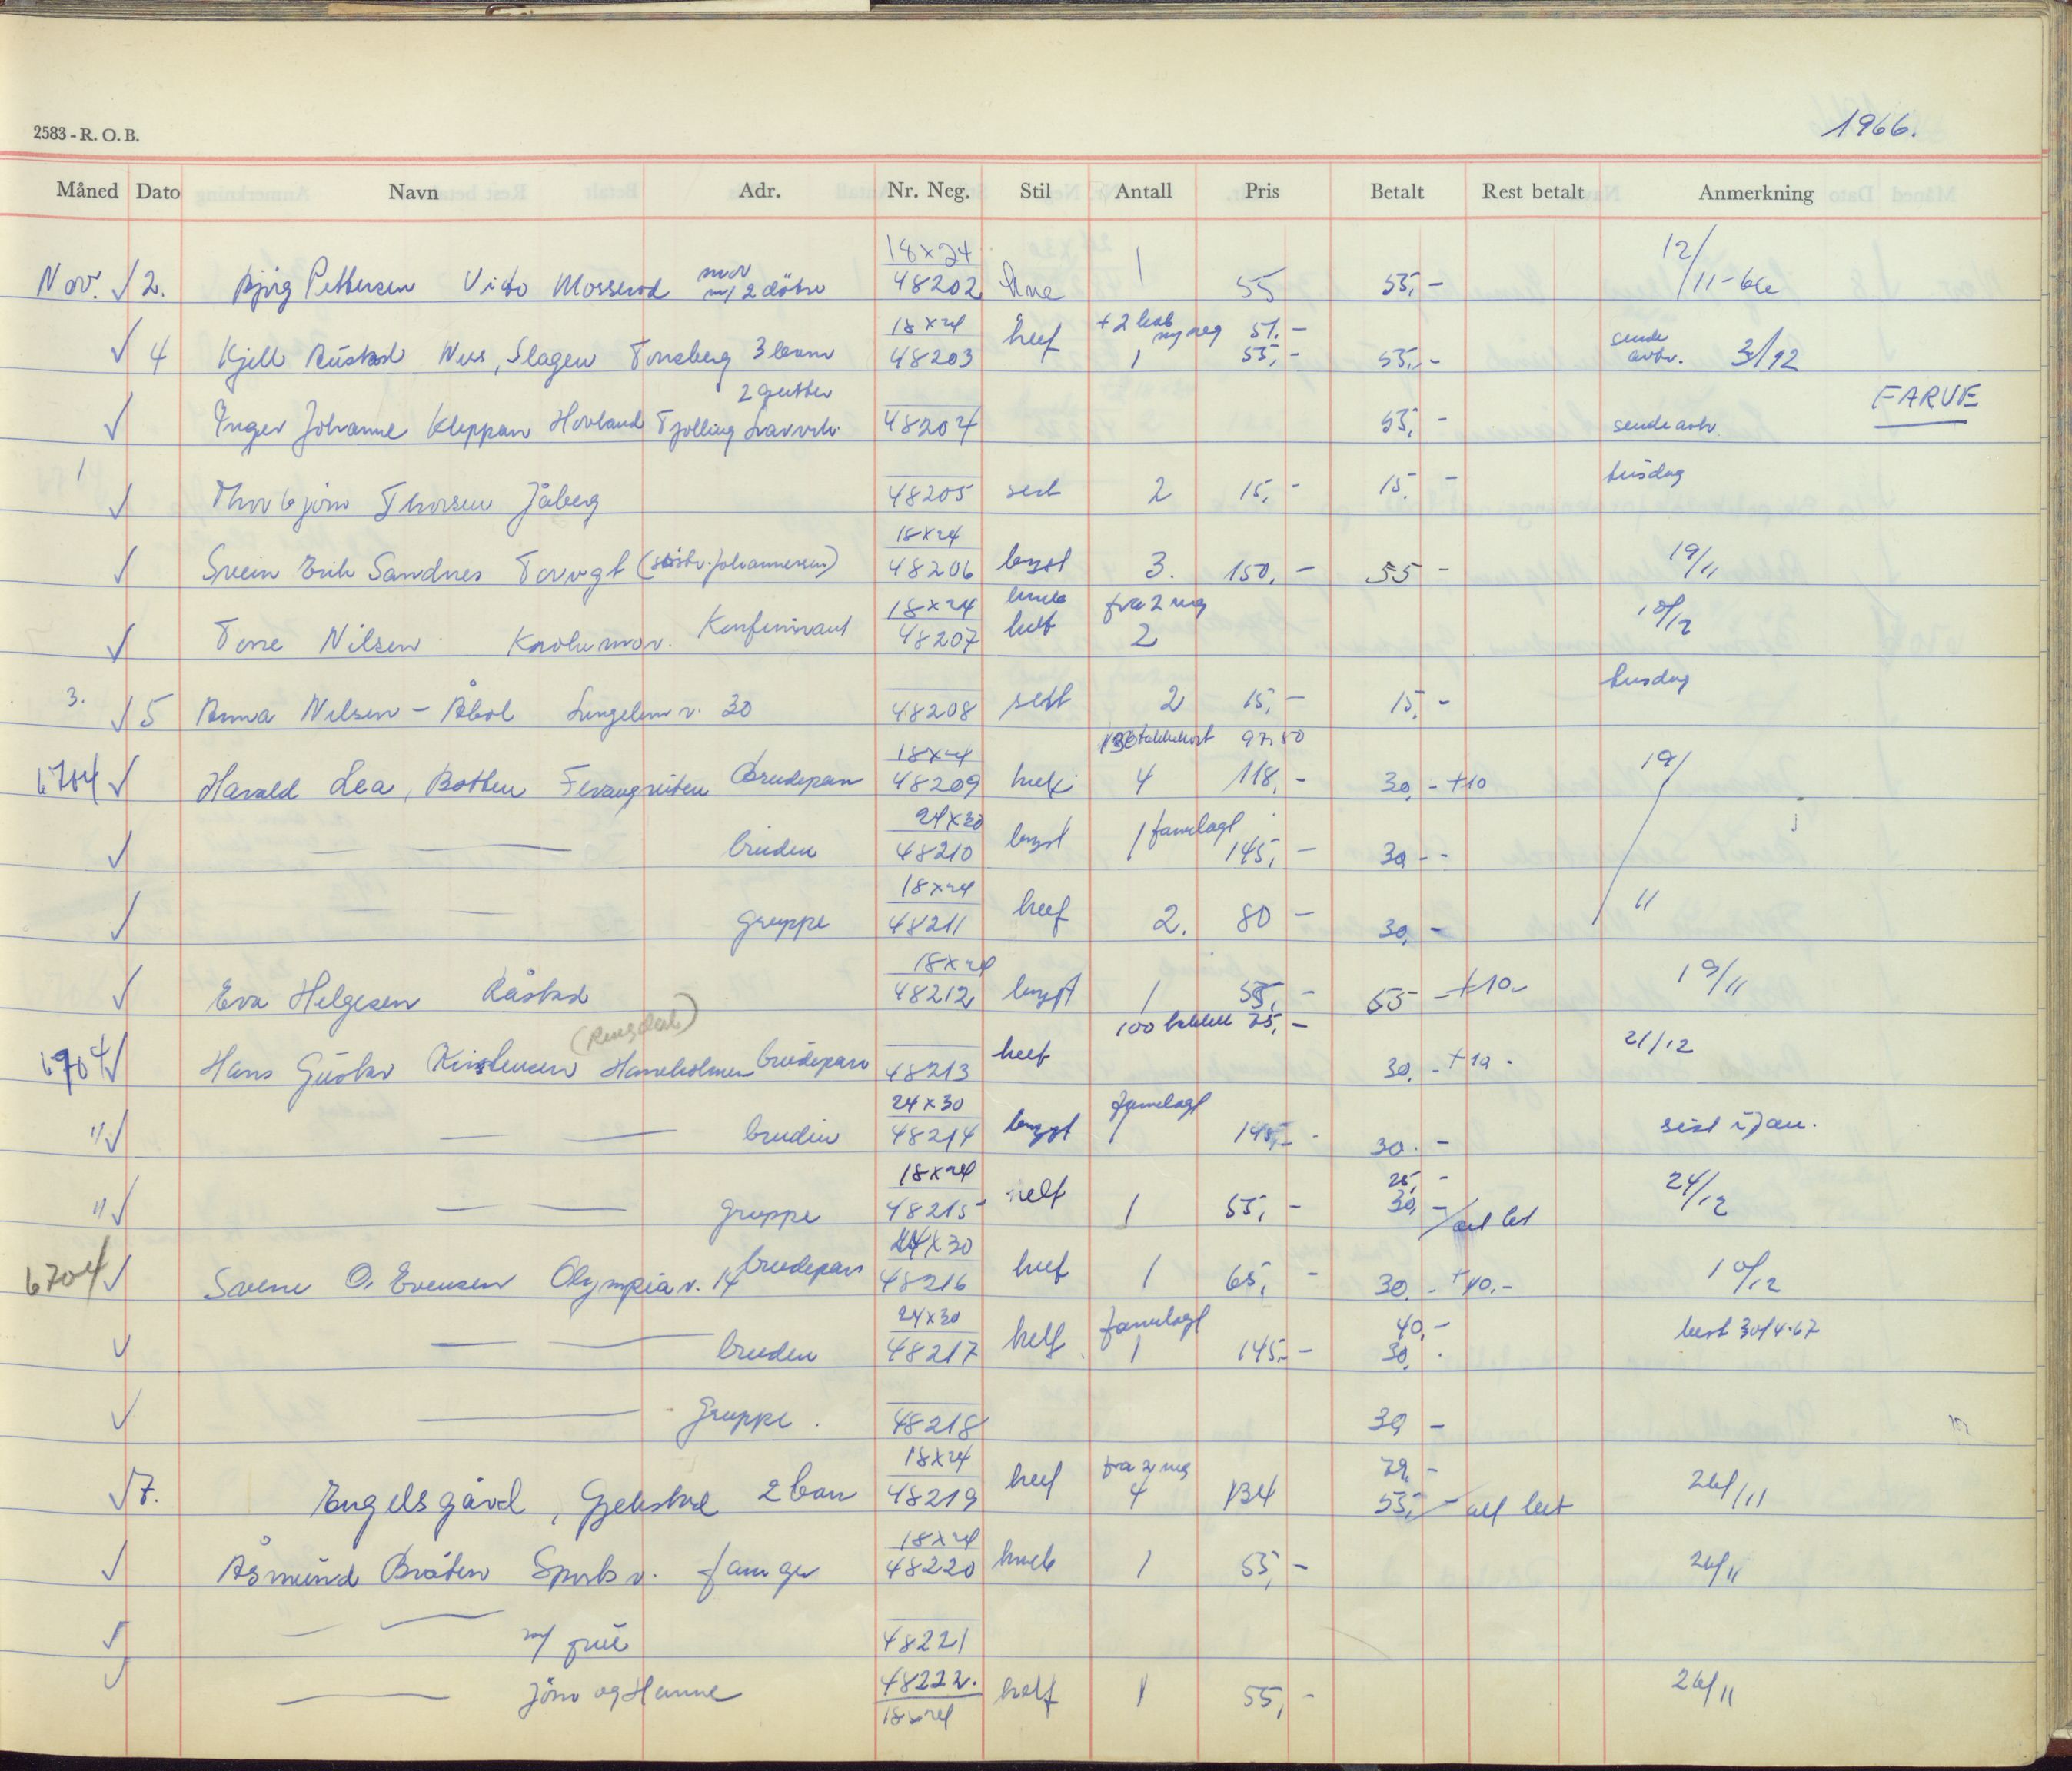 2583 - R. O. B.
1966.
Måned Dato Navn Adr. Nr. Neg. Stil Antall Pris Betalt Rest betalt Anmerkning
Nov. √ 2. Bjørg Pettersen Mosserød mor m/ 2 døtre 18x24 48202 1 55 55,- 12/11-66
√ 4 Kjell Rustad Slagen Tønsberg 3 barn 18x24 48203 helf + 2 kab ny neg 51.- 1 55,- 55,- sende avbr. 3/12
√ Inger Johanne Kleppan Hovland Tjølling Larvik 2 gutter 48204 55,- sende avbr. FARVE
1 √ Thorbjørn Thorsen Jåberg 48205 sert 2 15,- 15,- tirsdag
√ Svein Erik Sandnes Torvgt (søstr. Johannessen) 18x24 48206 byst 3. 150,- 55 - 19/11
√ Tore Nilsen Konfirmant 18x24 48207 helf fra 2 neg 2 10/12
3. √ 5 Anna Nilsen - Åbol Lingelem v. 30 48208 sert 2 15,- 15,- tirsdag
6704 √ Harald Lea, Botten brudepar 18x24 48209 helf takkekort 97,50 4 118,- 30,- +10 19/
√ — — — bruden 24x30 48210 byst 1 farvelagt 145,- 30 -
√ — — gruppe 18x24 48211 helf 2. 80 - 30,- 11
√ Eva Helgesen Råstad 18x24 48212 byst 1 55,- 55 - +10- 19/11
6704 √ Hans Gustav Kristensen (Ringdal) Haneholmen brudepar 48213 helf 100 takkek 75,- 30,- +10 - 21/12
" √ — — bruden 24x30 48214 byst farvelagt 1 145,- 30.- sist i jan.
" √ — — gruppe 18x24 48215 helf 1 55,- 25,- 30,- alt bet 24/12
6704 √ Svenn O. Evensen Olympia v. 14 brudepar 24x30 48216 helf 1 65,- 30.- +10.- 10/12
√ — — bruden 24x30 48217 helf farvelagt 1 145,- 40,- 30, best 30/4-67
√ — gruppe. 48218 30 -
√ 7. Engelsgård, Gjekstad 2 barn 18x24 48219 helf fra 2 neg 4 134 79,- 55,- alt bet 26/11
√ Åsmund Bråten Sports v. fanger 18x24 48220 1 55,- 26/11
√ — — m/ frue 48221
√ — Jørn og Hanne 48222. 18x24 helf 1 55,- 26/11